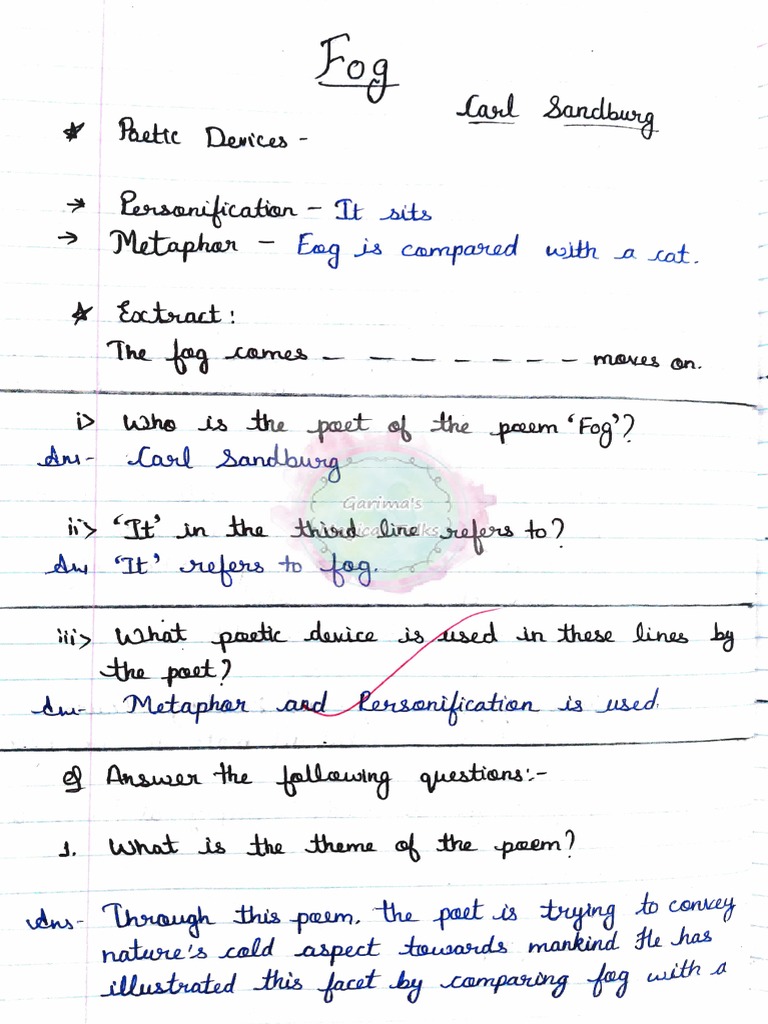 Fog
Carl Sandburg
★ Poetic Devices -
→ Personification - It sits
→ Metaphor - Fog is compared with a cat.
★ Extract:
The fog comes _ _ _ _ _ _ _ moves on.
i> Who is the poet of the poem 'Fog'?
Ans- Carl Sandburg
Garima's
ii> 'It' in the third line refers to?
Ans 'It' refers to fog.
iii> What poetic device is used in these lines by
the poet?
Ans- Metaphor and Personification is used.
Q Answer the following questions:-
1. What is the theme of the poem?
Ans- Through this poem, the poet is trying to convey
nature's cold aspect towards mankind He has
illustrated this facet by comparing fog with a